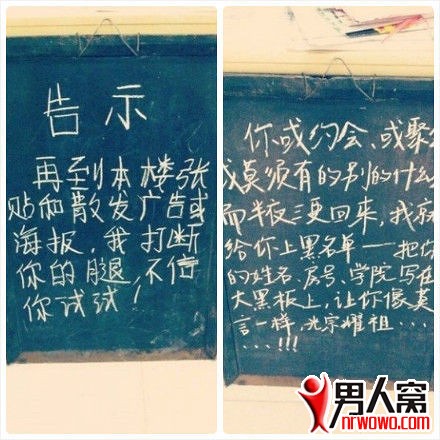 告示
再到本楼张
贴和散发广告或
海报，我打断
你的腿，不信
你试试！
你或约会、或聚
或莫须有的别的什么
而半夜三更回来，我就
给你上黑名单——把你
的姓名、房号、学院写在
大黑板上，让你像莫
言一样，光宗耀祖...
...!!!
男人窝
nrwowo.com